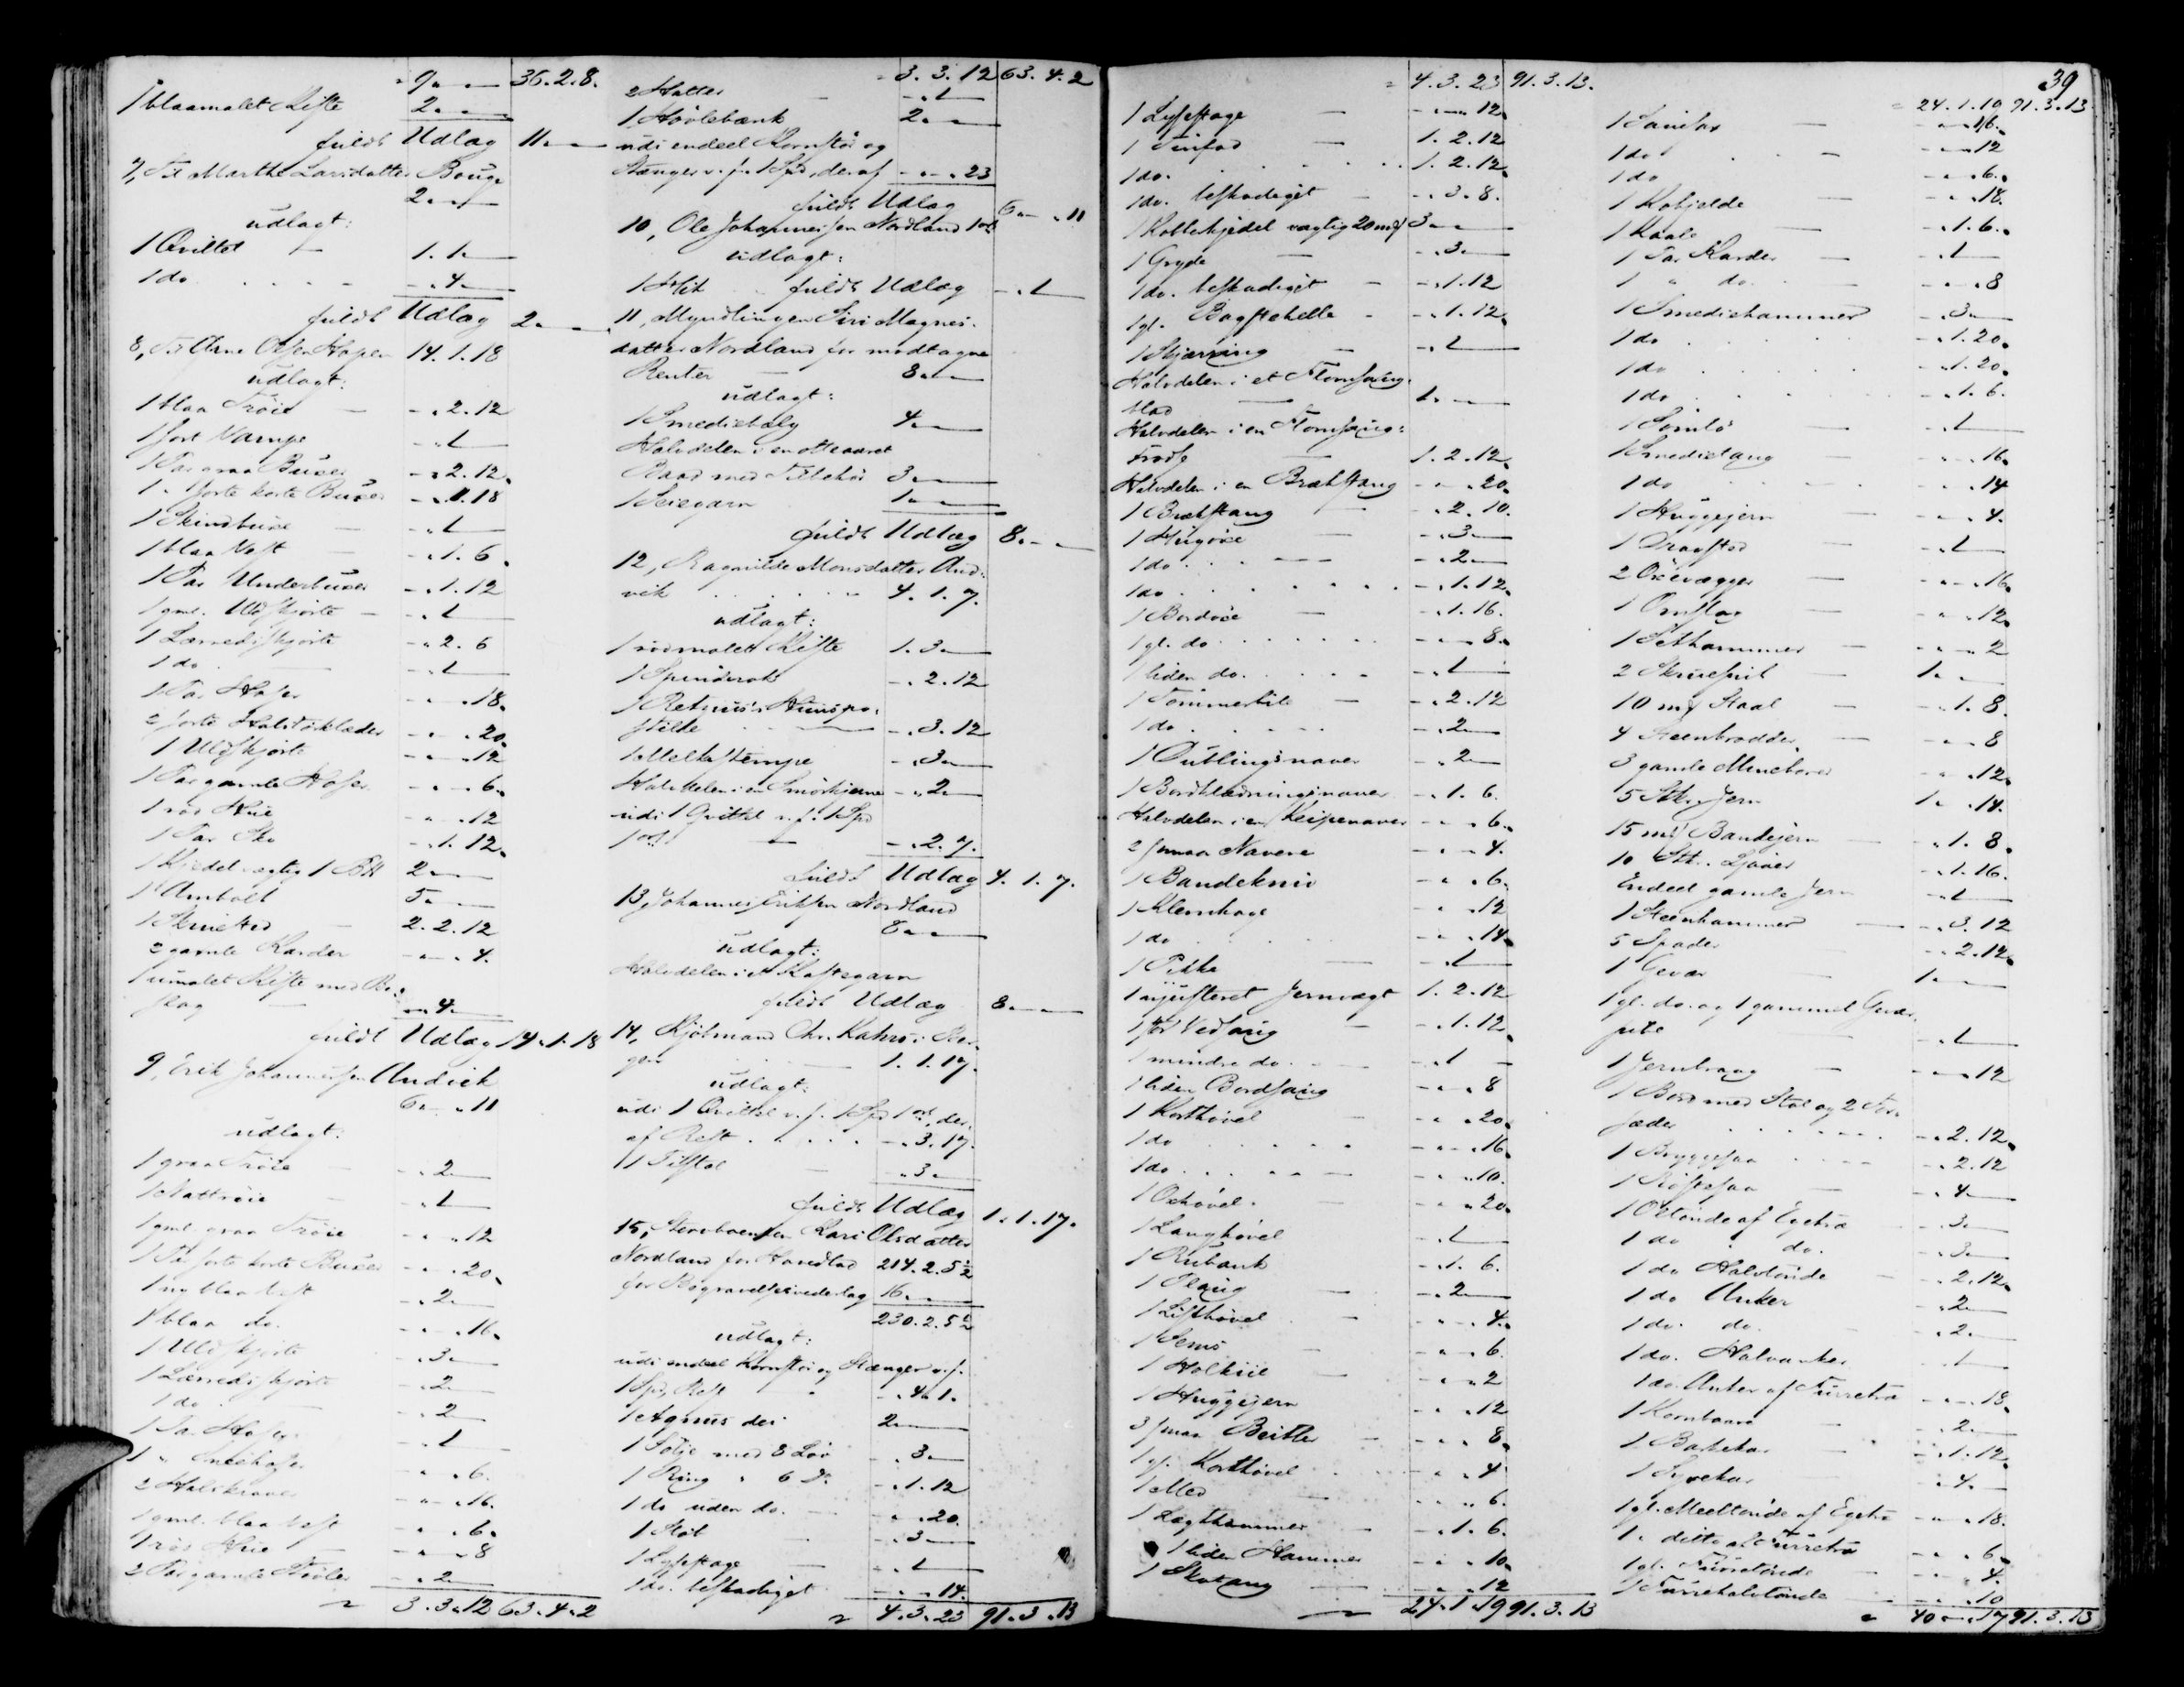 " 9 " — 36.2.8.
1 blaamalet Kiste 2 " —
fuldt Udlæg 11 " —
7, Til Marthe Larsdatter Bouge
2 " —
udlagt:
1 Qvittel — 1.1 —
1 do. " 4 —
fuldt Udlæg 2 " —
8, Til Arne Olsen Hopen 14.1.18
udlagt:
1 blaa Trøie — " 2.12
1 sort Vampe " 1 —
1 Par graa Buxer " 2.12.
1 " sorte korte Buxer " 1.18
1 Skindbuxe — " 1 —
1 blaa Vest — " 1.6.
1 Par Underbuxer " 1.12
1 gml. Uldskjorte — " 1 —
1 Lærredsskjorte " 2.6
1 do " 1 —
1 Par Hoser " " 18.
2 sorte Halstørklæder " " 20.
1 Uldskjorte " " 12
1 Par gamle Hoser " " 6.
1 rød Hue " " 12
1 Par Sko " 1.12.
1 Kjedel vægtig 1 B℔ 2 " —
1 Ambolt 5 " —
1 Skruested — 2.2.12
2 gamle Karder " " 4.
1 umalet Kiste med Be-
slag — " 4 —
fuldt Udlæg 14.1.18
9, Erik Johannessen Andvik
6 " " 11
udlagt:
1 graa Trøie — " 2 —
1 Nattrøie — " 1 —
1 gml. graa Trøie " " 12
1 Par sorte korte Buxer " " 20.
1 ny blaa Vest " 2 —
1 blaa do. " " 16.
1 Uldskjorte " 3 —
1 Lærredsskjorte " 2 —
1 do. " 2 —
1 Par Hoser " 1 —
1 " Sneehoser " " 6.
2 Halskraver " " 16.
1 gml. blaa Vest " " 6.
1 rød Hue — " " 8
2 Par gamle Støvler " 2 —
3.3.12 63.4.2
" 3.3.12 63.4.2
2 Hatter — " 1 —
1 Høvlebænk 2 " —
udi endeel Kornstøi og
Stænger v. f. 1 Spd, deraf " " 23
fuldt Udlæg 6 " " 11
10, Ole Johannessen Nordland 1 ort
udlagt:
1 Hit fuldt Udlæg " 1 —
11, Myndlingen Siri Magnes-
datter Nordland for modtagne
Renter — 8 " —
udlagt:
1 Smediebelg 4 " —
Halvdelen i en otteaaret
Baad med Tilbehør 3 " —
1 Seiegarn 1 " —
fuldt Udlæg 8 " —
12, Ragnilde Monsdatter And-
vik 4.1.7.
udlagt:
1 rødmalet Kiste 1.3 —
1 Spinderok " 2.12
1 Retzius's Huuspo-
stille — " 3.12
1 Melkestempe " 3 —
Halvdelen i en Smørkjerne " 2 —
udi 1 Qvittel v. f. 1 Spd
1 ort — " 2.7.
fuldt Udlæg 4.1.7.
13, Johannes Eriksen Nordland
8 " —
udlagt:
Halvdelen i et Kastegarn
fuldt Udlæg 8 " —
14, Kjøbmand Chr. Kahrs i Ber-
gen — 1.1.17.
udlagt:
udi 1 Qvittel v. f. 1 Spd 1 ort, der-
af Rest " 3.17.
1 " 3 —
fuldt Udlæg 1.1.17.
15, Stervboenken Kari Olsdatter
Nordland for Hovedlod 214.2.5½
for Begravelsesvederlag 16 " —
230.2.5½
udlagt:
udi endeel Kornstøi og Stænger v. f.
1 Spd, Rest " 4.1.
1 Agnus dei 2 " —
1 Sølje med 8 Løv " 3 —
1 Ring " 6 D. " 1.12
1 do uden do. — " " 20.
1 " 3 —
1 Lysestage — " 1 —
1 do. beskadiget " " 14.
4.3.23 91.3.13
39
" 4.3.23 91.3.13.
1 Lysestage — " " 12.
1 Tinfad — 1.2.12
1 do. 1.2.12.
1 do. beskadiget — " 3.8.
1 Kobberkjedel vægtig 20 m℔ 3 " —
1 Gryde — " 3 —
1 do. beskadiget — " 1.12
1 gl. Bagstehelle — " 1.12.
1 Skjæring — " 1 —
Halvdelen i et Flomsaug-
blad — 1 " —
Halvdelen i en Flomsaug-
— 1.2.12.
Halvdelen i en Brækstang " " 20.
1 Brækstang — " 2.10.
1 Hugøxe — " 3 —
1 do. " 2 —
1 do " 1.12.
1 Bordøxe — " 1.16.
1 gl. do " " 8.
1 liden do. " 1 —
1 Tømmerbile — " 2.12
1 do. " 2 —
1 Dublingsnaver — " 2 —
1 Bordklædningsnaver " 1.6.
Halvdelen i en Keipenaver " " 6.
2 smaa Navere " " 4.
1 Baandekniv " " 6.
1 Klemhage " " 12
1 do " " 14.
1 Pikke — " 1 —
1 ujusteret Jernvægt 1.2.12
1 stor Vedsaug — " 1.12.
1 mindre do. " 1 —
1 liden Bordsaug " " 8
1 Korthøvel — " " 20.
1 do " " 16.
1 do. " " 10.
1 Oxhøvel. — " " 20.
1 Langhøvel " 1 —
1 Rubank " 1.6.
1 Plaug — " 2 —
1 Listhøvel — " " 4.
1 — " " 6.
1 — " " 2
1 Huggejern " " 12
3 smaa Beitler — " " 8.
1 gl. Korthøvel " " 4.
1 — " " 6.
1 Lægthammer — " 1.6.
1 liden Hammer " " 10.
1 Skotang — " " 12
24.1.19 91.3.13
24.1.19 91.3.13
1 Sauesax — " " 16.
1 do — " " 12
1 do " " 6.
1 Kobjelde — " " 18.
1 — " 1.6.
1 Par Karder — " 1 —
1 " do. — " " 8
1 Smediehammer — " 3 —
1 do " 1.20.
1 do " 1.20.
1 do " 1.6.
1 — " 1 —
1 Smedietang — " " 16.
1 do " " 14
1 Huggejern — " " 4.
1 — " 1 —
2 Øxevægger — " " 16.
1 — " " 12.
1 Sethammer — " " 2
2 — 1 " —
10 m℔ Staal — " 1.8.
4 Steenbrodder — " " 8
3 gamle Mineborer " " 12.
5 Stkr. Jern 1 " " 14.
15 m℔ Baandjern — " 1.8.
10 Stkr. Ljaaer " 1.16.
Endeel gamle Jern " 1 —
1 Steenhammer — " 3.12
5 Spader " 2.12.
1 Gevær — 1 " —
1 gl. do. og 1 gammel Gevær-
pibe — " 1 —
1 Jernkrog — " " 12
1 Bord med Stol og 2
" 2.12.
1 Bryggesaa " 2.12
1 — " 4 —
1 Øltønde af Egetræ — " 3 —
1 do " do. " 3 —
1 do Halvtønde — " 2.12.
1 do Anker " 2 —
1 do. do. " 2 —
1 do. Halvanker " 1 —
1 do. Anker af Furretræ " " 18.
1 " 2 —
1 — " 1.12.
1 " 4 —
1 gl. Meeltønde af Egetræ " " 18.
1 " ditto af Furretræ " " 6.
1 gl. Furretønde — " " 4.
1 Furrehalvtønde " " 10
40 " " 17 91.3.13